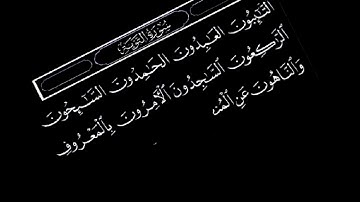 سورة التوبة
التَّٰٓئِبُونَ الْعَٰبِدُونَ الْحَٰمِدُونَ السَّٰٓئِحُونَ
الرَّٰكِعُونَ السَّٰجِدُونَ الْءَامِرُونَ بِالْمَعْرُوفِ
وَالنَّاهُونَ عَنِ الْمُنـ